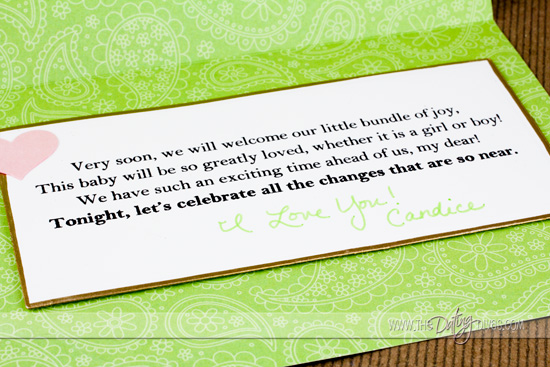 Very soon, we will welcome our little bundle of joy,
This baby will be so greatly loved, whether it is a girl or boy!
We have such an exciting time ahead of us, my dear!
Tonight, let's celebrate all the changes that are so near.
I Love You!
Candice
WWW.THE Dating DIVAS.COM